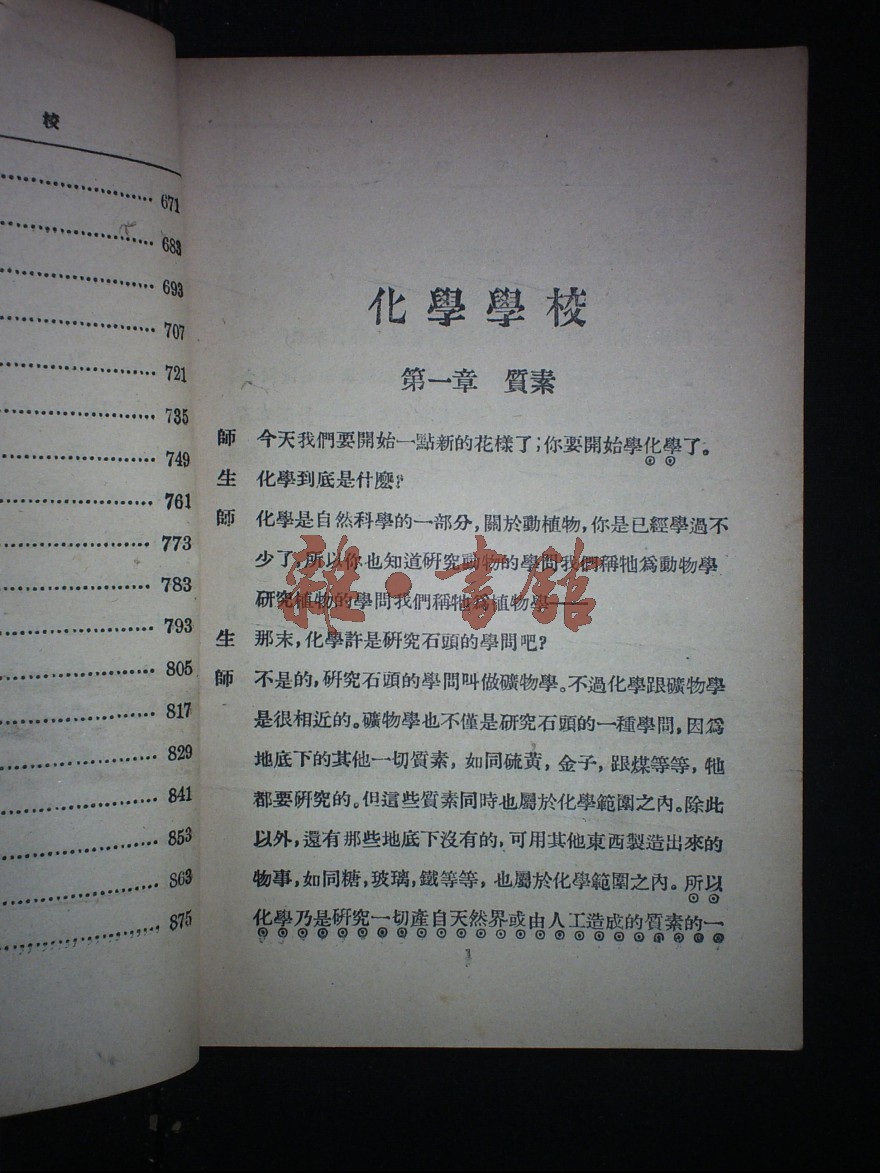 校
671
683
693
707
721
735
749
761
773
783
793
805
817
829
841
853
863
875
化學學校
第一章 質素
師 今天我們要開始一點新的花樣了；你要開始學化學了。
生 化學到底是什麽？
師 化學是自然科學的一部分，關於動植物，你是已經學過不
少了，所以你也知道研究動物的學問我們稱牠爲動物學
研究植物的學問我們稱牠爲植物學——
生 那末，化學許是研究石頭的學問吧？
師 不是的，研究石頭的學問叫做礦物學。不過化學跟礦物學
是很相近的。礦物學也不僅是研究石頭的一種學問，因爲
地底下的其他一切質素，如同硫黃，金子，跟煤等等，牠
都要研究的。但這些質素同時也屬於化學範圍之內。除此
以外，還有那些地底下沒有的，可用其他東西製造出來的
物事，如同糖，玻璃，鐵等等，也屬於化學範圍之內。所以
化學乃是研究一切產自天然界或由人工造成的質素的一
1
雜·書館